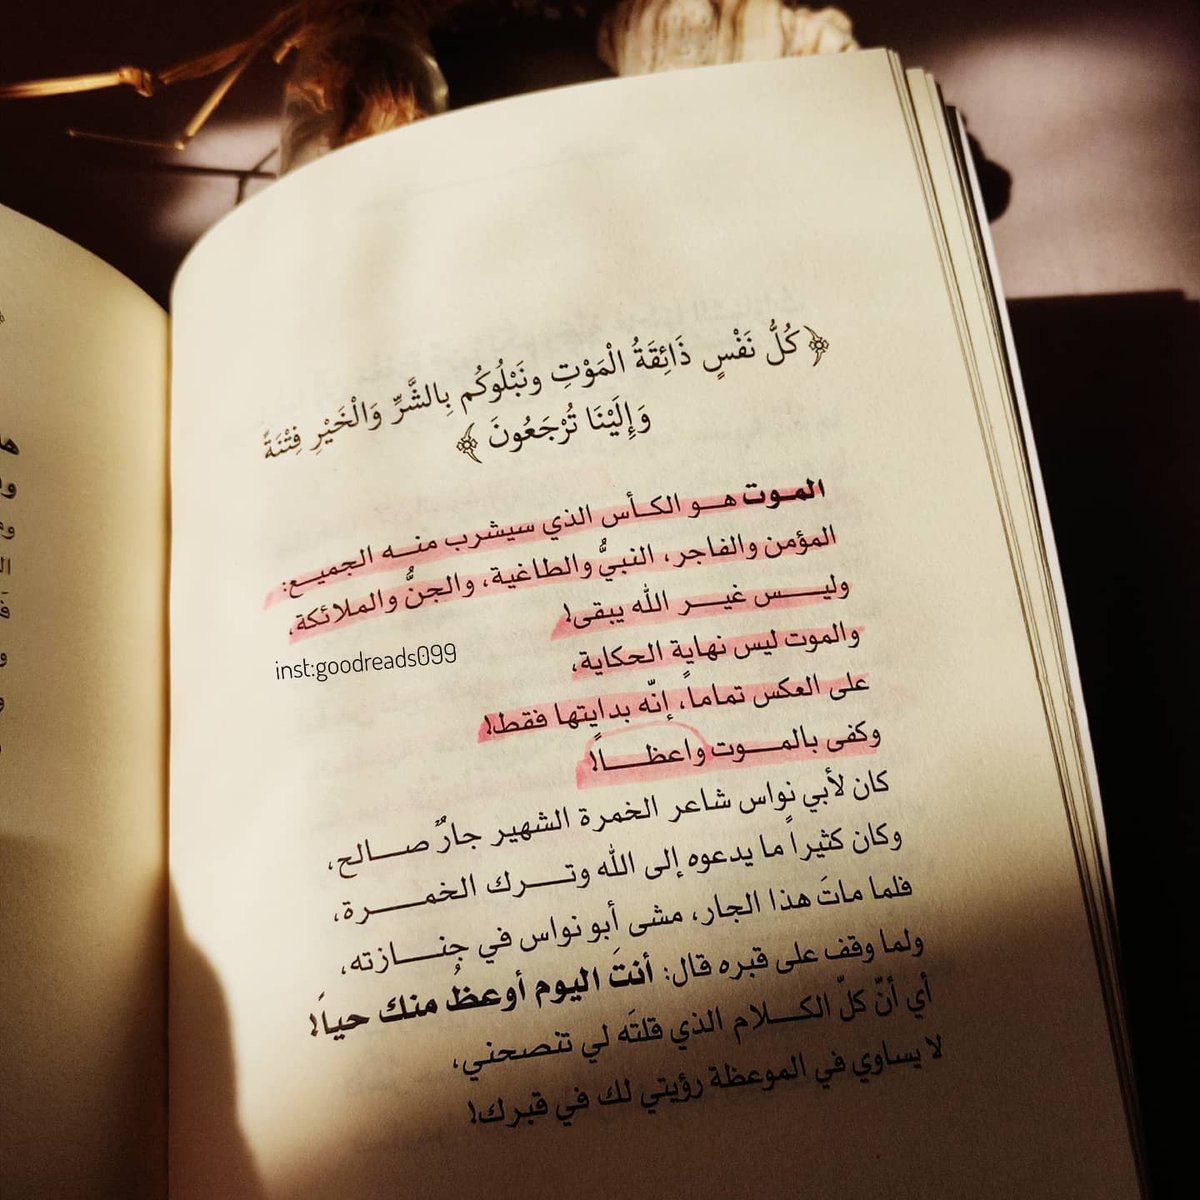 ﴿كُلُّ نَفْسٍ ذَائِقَةُ الْمَوْتِ ونَبْلُوكُم بِالشَّرِّ وَالْخَيْرِ فِتْنَةً
وَإِلَيْنَا تُرْجَعُونَ﴾
الموت هو الكأس الذي سيشرب منه الجميع:
المؤمن والفاجر، النبيُّ والطاغية، والجنُّ والملائكة،
وليس غير الله يبقى!
inst:goodreads099
والموت ليس نهاية الحكاية،
على العكس تماماً، إنّه بدايتها فقط!
وكفى بالموت واعظاً!
كان لأبي نواس شاعر الخمرة الشهير جارٌ صالح،
وكان كثيراً ما يدعوه إلى الله وترك الخمرة،
فلما ماتَ هذا الجار، مشى أبو نواس في جنازته،
ولما وقف على قبره قال: أنتَ اليوم أوعظُ منك حياً!
أي أنّ كلّ الكلام الذي قلتَه لي تنصحني،
لا يساوي في الموعظة رؤيتي لك في قبرك!